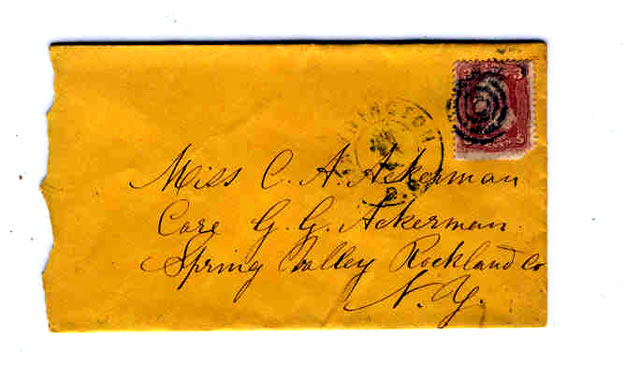 Miss C. A. Ackerman
Care G. G. Ackerman
Spring Valley Rockland Co
N. Y.
3